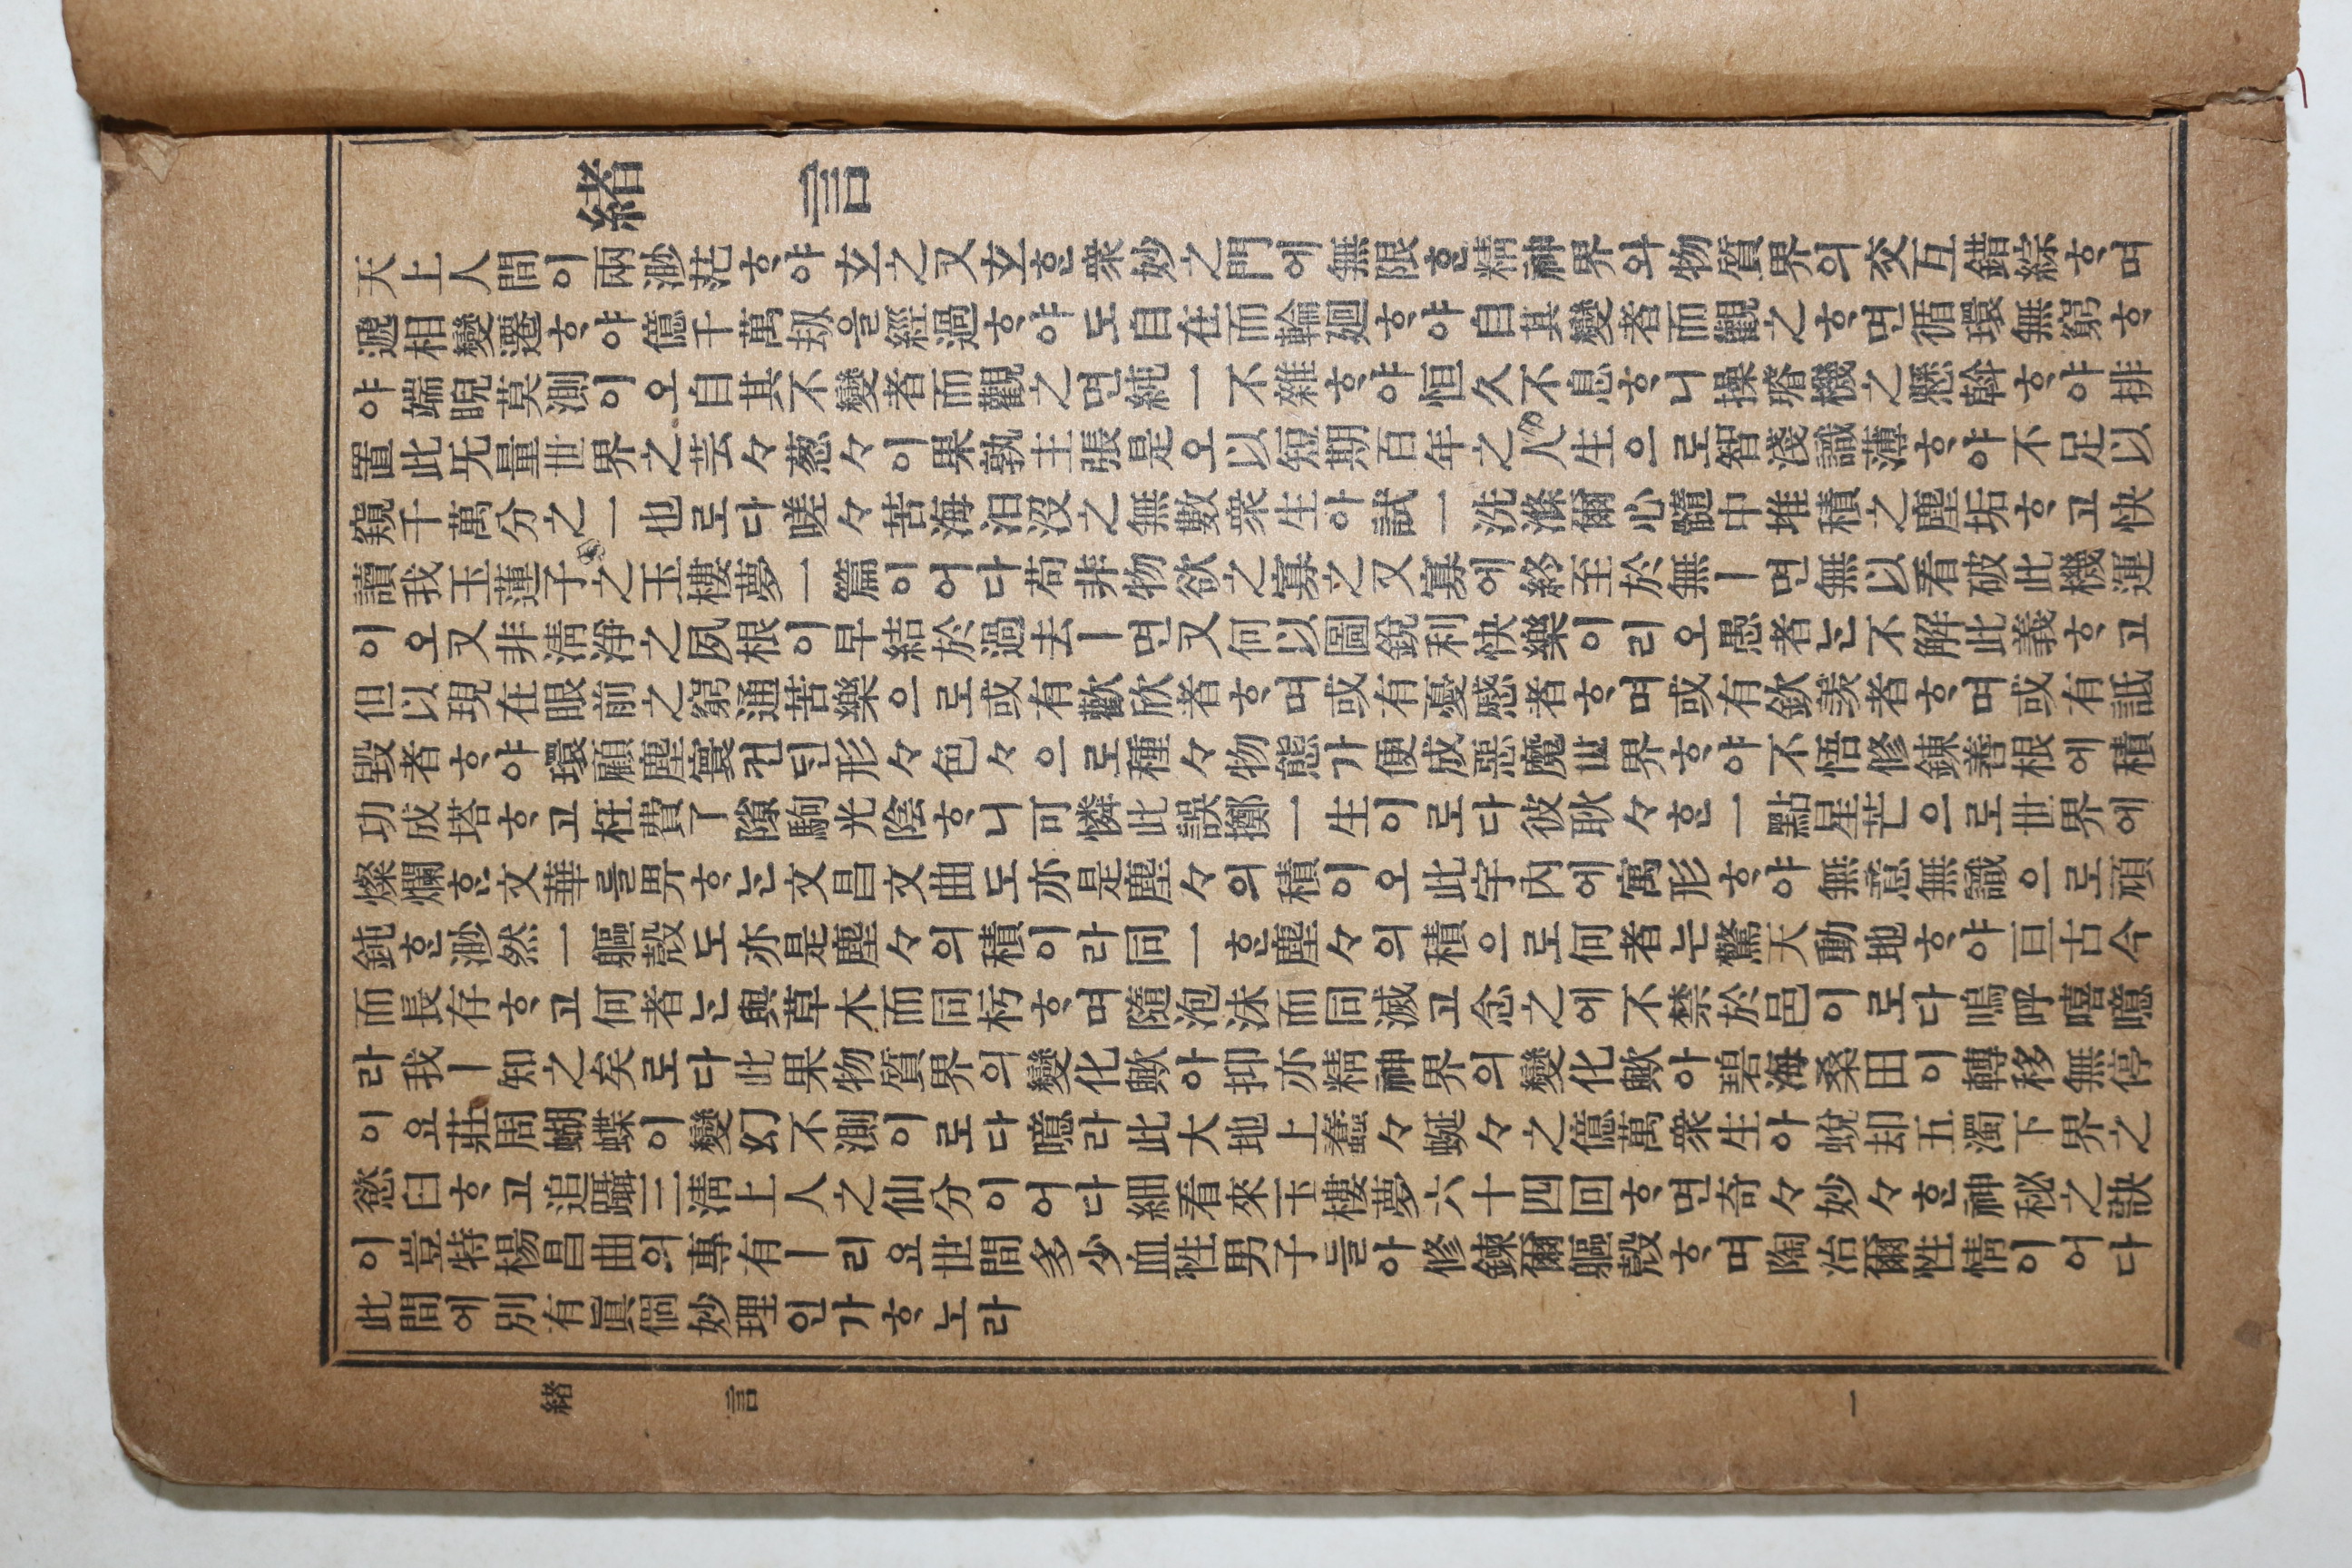 緖言
天上人間이兩渺茫ᄒᆞ야玄之又玄ᄒᆞᆫ衆妙之門에無限ᄒᆞᆫ精神界와物質界의交互錯綜ᄒᆞ며
遞相變遷ᄒᆞ야億千萬刼을經過ᄒᆞ야도自在而輪廻ᄒᆞ야自其變者而觀之ᄒᆞ면循環無窮ᄒᆞ
야端睨莫測이오自其不變者而觀之면純一不雜ᄒᆞ야恒久不息ᄒᆞ니操璿機之懸斡ᄒᆞ야排
置此旡量世界之芸々葱々이果孰主張是오以短期百年之人生으로智淺識薄ᄒᆞ야不足以
窺千萬分之一也로다嗟々苦海汩沒之無數衆生아試一洗滌爾心髓中堆積之塵垢ᄒᆞ고快
讀我玉蓮子之玉樓夢一篇이어다苟非物欲之寡之又寡에終至於無ㅣ면無以看破此機運
이오又非淸淨之夙根이早結於過去ㅣ면又何以圖銳利快樂이리오愚者ᄂᆞᆫ不解此義ᄒᆞ고
但以現在眼前之窮通苦樂으로或有歡欣者ᄒᆞ며或有憂慼者ᄒᆞ며或有欽羨者ᄒᆞ며或有詆
毀者ᄒᆞ야環顧塵寰컨ᄃᆡᆫ形々色々으로種々物態가便成惡魔世界ᄒᆞ야不悟修鍊善根에積
功成塔ᄒᆞ고枉費了隙駒光陰ᄒᆞ니可憐此誤擲一生이로다彼耿々ᄒᆞᆫ一點星芒으로世界에
燦爛ᄒᆞᆫ文華를畀ᄒᆞᄂᆞᆫ文昌文曲도亦是塵々의積이오此宇內에寓形ᄒᆞ야無意無識으로頑
鈍ᄒᆞᆫ渺然一軀殼도亦是塵々의積이라同一ᄒᆞᆫ塵々의積으로何者는驚天動地ᄒᆞ야亘古今
而長存ᄒᆞ고何者ᄂᆞᆫ與草木而同朽ᄒᆞ며隨泡沫而同滅고念之에不禁於邑이로다嗚呼嘻噫
라我ㅣ知之矣로다此果物質界의變化歟아抑亦精神界의變化歟아碧海桑田이轉移無停
이요莊周蝴蝶이變幻不測이로다噫라此大地上蠢々蜒々之億萬衆生아蛻却五濁下界之
慾臼ᄒᆞ고追躡三淸上人之仙分이어다細看來玉樓夢六十四回ᄒᆞ면奇々妙々ᄒᆞᆫ神秘之訣
이豈特楊昌曲의專有ㅣ리요世間多少血性男子들아修鍊爾軀殼ᄒᆞ며陶冶爾性情이어다
此間에別有眞個妙理인가ᄒᆞ노라
緖言 一